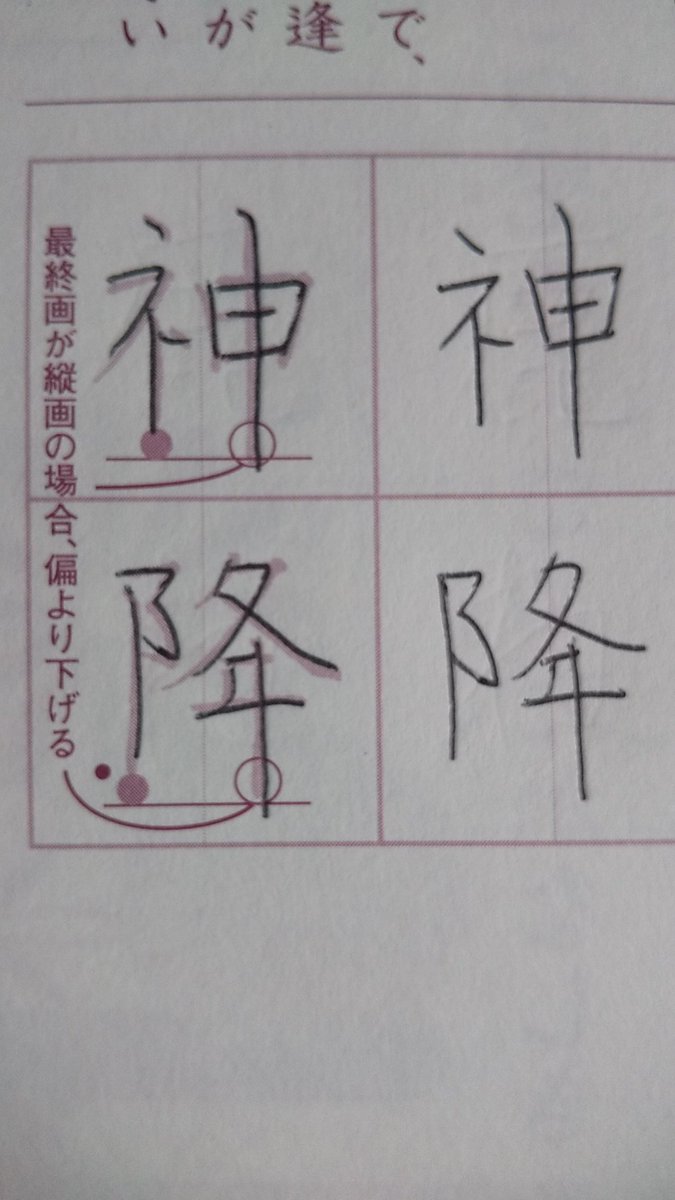 で、
逢
が
い
最終画が縦画の場合、偏より下げる
神 神
降 降